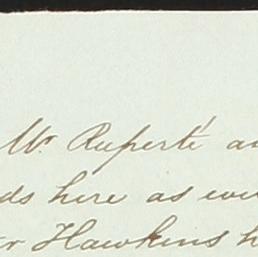 Mr Ruperté a
ds here as ev
r Hawkins h